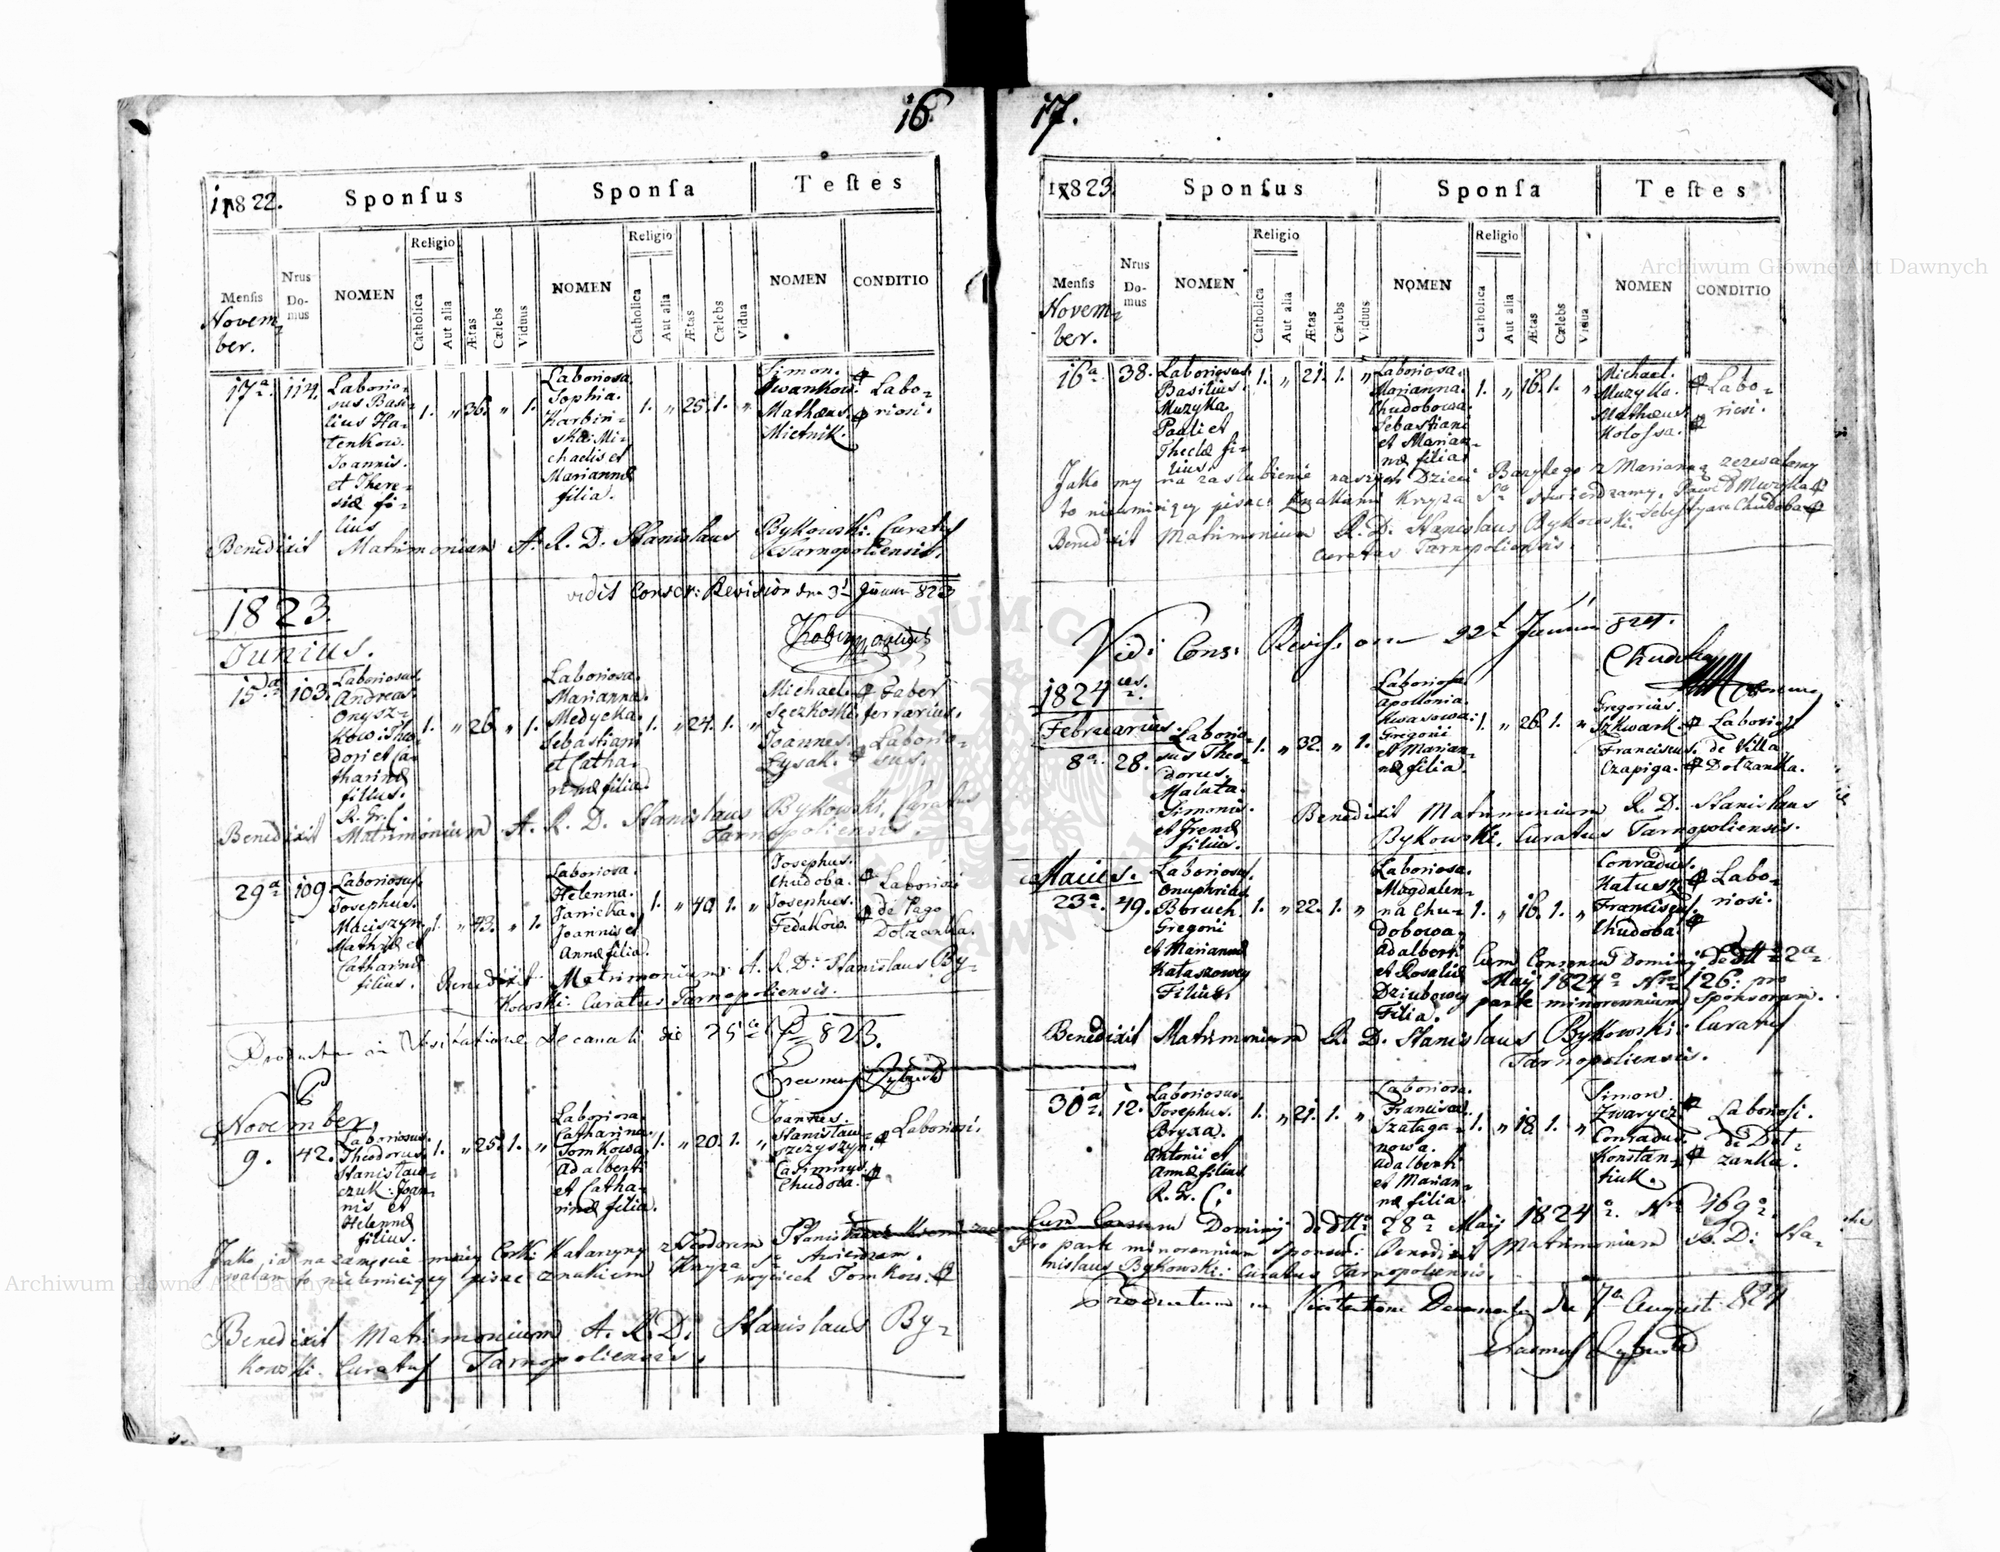 16
1822.
Sponſus
Sponſa
Teſtes
Menſis
Novem=
ber.
Nrus
Do-
mus
NOMEN
Religio
Catholica
Aut alia
Ætas
Cælebs
Viduus
NOMEN
Religio
Catholica
Aut alia
Ætas
Cælebs
Vidua
NOMEN
CONDITIO
17a. 114.
Laborio-
sus Basi-
lius Ha-
tenkow.
Joannis.
et There-
siæ fi-
lius
1. " 36. " 1.
Laboriosa
Sophia.
Karbin-
ska Mi-
chaelis et
Mariannæ
filia.
1. " 25. 1. "
Simon.
Iwankow.
Mathæus.
Mietnik.
Labo-
riosi.
Benedixit Matrimonium A. R. D. Stanislaus Bykowski: Curatus
Tarnopoliensis.
1823.
Junius.
15a. 103.
Laboriosus.
Andreas.
Onysz-
kow: Theo-
dori et Ca-
tharinæ
filius.
R. G. C.
1. " 26. " 1.
Laboriosa.
Marianna.
Medycka.
Sebastiani
et Catha-
rinæ filia.
1. " 24. 1. "
Michael.
Joannes.
Łysak.
Faber
ferrarius.
Laborio-
sus.
Benedixit Matrimonium A. R. D. Stanislaus Bykowski. Curatus
Tarnopoliensis.
29a. 109
Laboriosus.
Josephus.
Maciszyn.
Mathiæ et
Catharinæ
filius.
1. " 43. " 1.
Laboriosa.
Helenna.
Janicka.
Joannis et
Annæ filia.
1. " 40 1. "
Josephus.
Chudoba.
Josephus.
Fedakow.
Laboriosi
de Pago
Dolzanka.
Benedixit Matrimonium: A. R. D: Stanislaus By-
kowski: Curatus Tarnopoliensis.
Visitatione Decanali die 25a 823.
November.
9. 42.
Laboriosus.
Theodorus.
Stanisław-
czuk: Joan-
nis et
Helennæ
filius.
1. " 25. 1. "
Laboriosa.
Catharina.
Tomkowa.
Adalberti
et Catha-
rinæ filia.
1. " 20. 1. "
Joannes.
Casimirus.
Chudoba.
Laboriosi.
Jako ja na zamęscie moiey Corki Katarzyny z Teodorem
pisac znakiem Krzyza Se stwierdzam.
Woyciech Tomkow.
Benedixit Matrimonium A. R. D: Stanislaus By-
kowski. Curatus Tarnopoliensis.
17.
1823.
Sponſus
Sponſa
Teſtes
Menſis
Novem=
ber.
Nrus
Do-
mus
NOMEN
Religio
Catholica
Aut alia
Ætas
Cælebs
Viduus
NOMEN
Religio
Catholica
Aut alia
Ætas
Cælebs
Vidua
NOMEN
CONDITIO
16a 38.
Laboriosus.
Basilius.
Muzyka.
Pauli et
Theclæ fi-
lius.
1. " 21. 1. "
Laboriosa.
Marianna.
Chudobowa.
Sebastiani
et Marian-
næ filia.
1. " 16. 1. "
Michael.
Muzyka.
Mathæus.
Kolossa.
Labo-
riosi.
Jako my na zaslubienie naszych Dzieci Bazylego z Marianną zezwalamy
to nieumieiący pisac Znakami Krzyza Se stwierdzamy. Paweł Muzyka
Sebestyan Chudoba
Benedixit Matrimonium R. D. Stanislaus Bykowski:
Curatus Tarnopoliensis.
Vidi Cons: 22t 824.
1824
Februarius.
8a. 28.
Laborio-
sus Theo-
dorus.
Malata.
Simonis.
et Irenæ
filius.
1. " 32. " 1.
Laboriosa.
Apollonia.
Kwasowa.
Gregorii
et Marian-
næ filia.
1. " 26 1. "
Gregorius.
Szkwark.
Franciscus.
Czapiga.
de Villa
Dolzanka.
Benedixit Matrimonium R. D. Stanislaus
Bykowski. Curatus Tarnopoliensis.
Maius.
23a. 49.
Laboriosus.
Onuphrius
Boruch.
Gregorii
et Mariannæ
Kataszowey
Filius.
1. " 22. 1. "
Laboriosa.
Magdalen-
na Chu-
dobowa.
Adalberti
et Rosaliæ
Dziubowey
Filia.
1. " 16. 1. "
Conradus.
Katusz
Franciscus.
Chudoba.
Labo-
riosi.
Cum Consensu Dominij de dtto 22a
Maij 1824o Nro 126: pro
parte minorennium Sponsorum.
Benedixit Matrimonium R. D. Stanislaus Bykowski: Curatus
Tarnopoliensis.
30a. 12.
Laboriosus.
Josephus.
Bryxa.
Antonii et
Annæ filius
R. G. C.
1. " 21. 1. "
Laboriosa.
Francisca.
Szataga-
nowa.
Adalberti
et Marian-
næ filia
1. " 18 1. "
Simon.
Zwarycz
Conradus.
Konstan-
tiuk.
Laboriosi.
de Dol-
zanka.
Cum Consensu Dominij de dtto 28a Maij 1824o. Nro 169o.
Pro parte minorennium sponsor: Benedixit Matrimonium R. D: Sta-
nislaus Bykowski: Curatus Tarnopoliensis.
Productum in Visitatione Decanali die 7a August 824
Archiwum Główne Akt Dawnych
Archiwum Główne Akt Dawnych